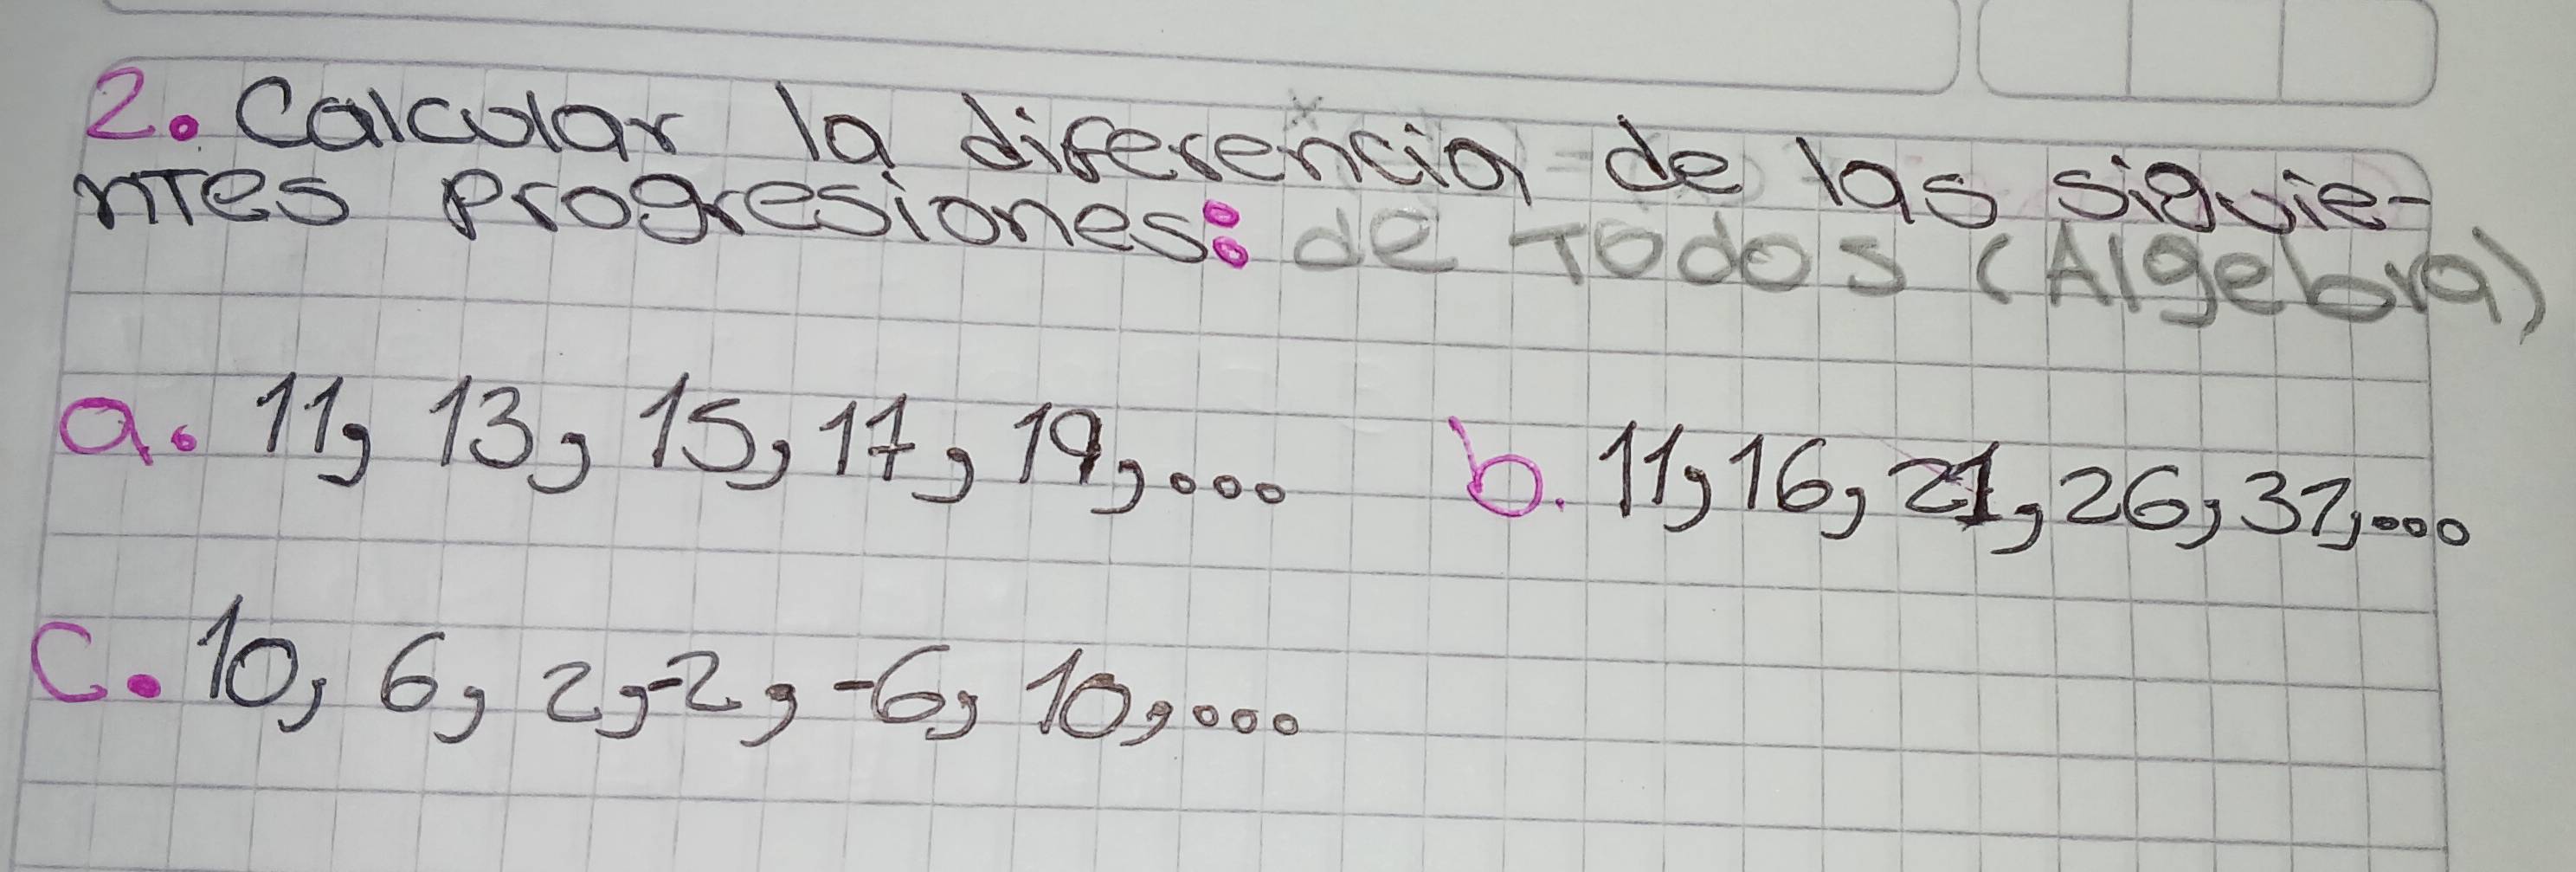 2. Calcular la diferencia de las siguie-
ntes progresiones: de Todos (Algebra)
a. 11, 13, 15, 17, 19, ... b. 11, 16, 21, 26, 31, ...
c. 10, 6, 2, -2, -6, 10, ...